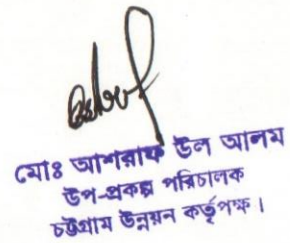 মোঃ আশরাফ উল আলম
উপ-প্রকল্প পরিচালক
চট্টগ্রাম উন্নয়ন কর্তৃপক্ষ।